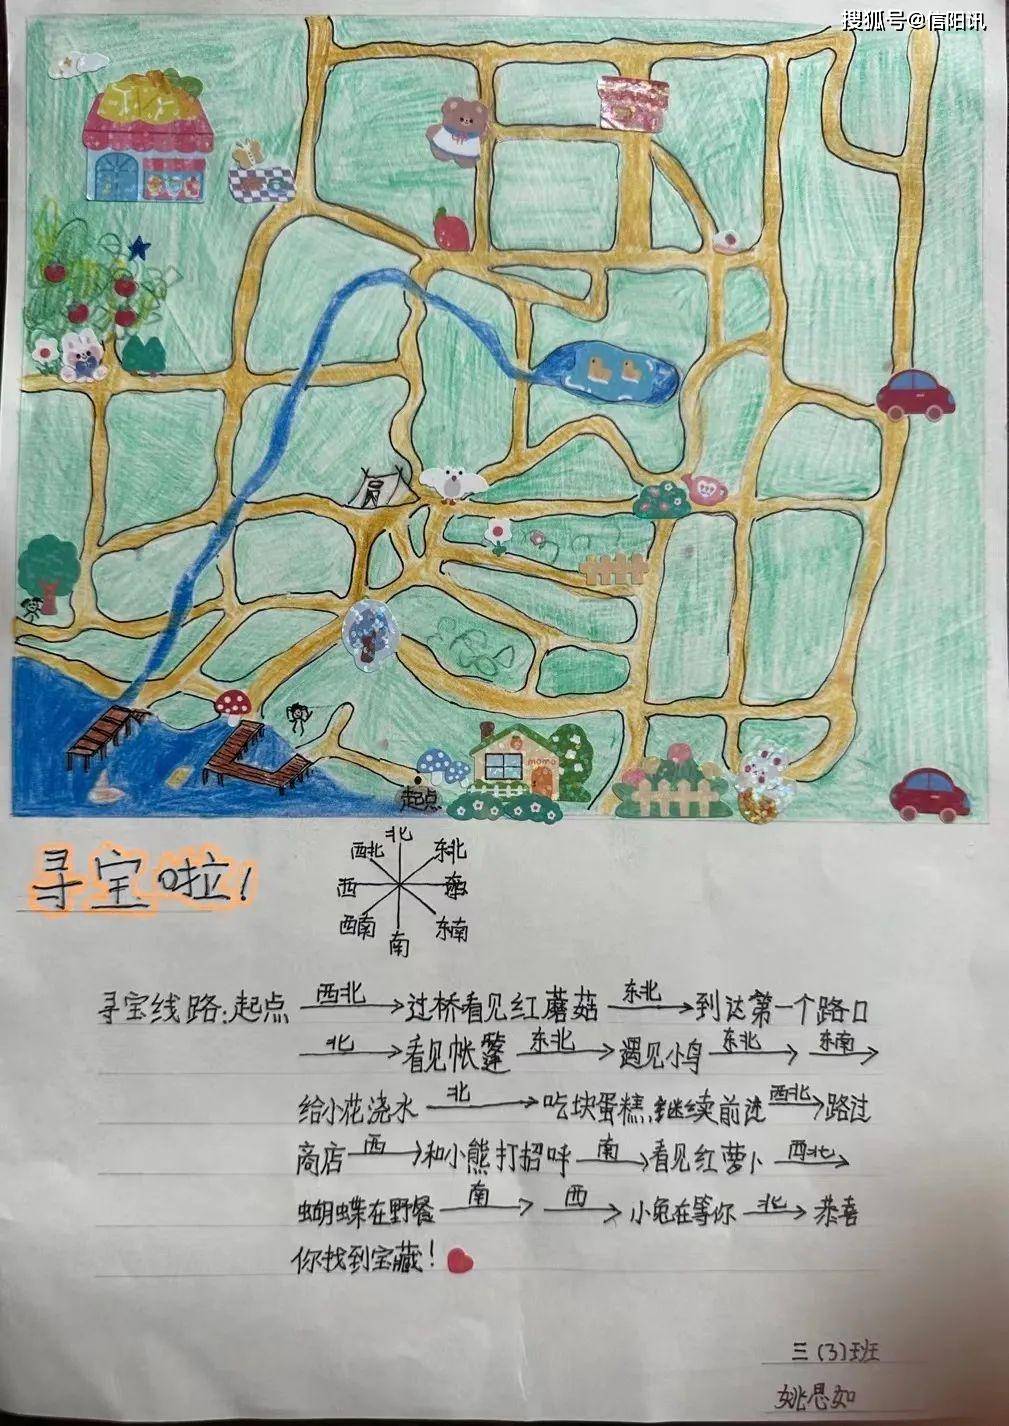 搜狐号@信阳讯
momo
起点
寻宝啦!
北
西北 东北
西 东
西南 东南
南
西北 东北
寻宝线路:起点 → 过桥看见红蘑菇 → 到达第一个路口
北 东北 东北 东南
→ 看见帐篷 → 遇见小鸟 → →
北 西北
给小花浇水 → 吃块蛋糕,继续前进 → 路过
西 南 西北
商店 → 和小熊打招呼 → 看见红萝卜 →
南 西 北
蝴蝶在野餐 → → 小兔在等你 → 恭喜
你找到宝藏!
三(3)班
姚思如